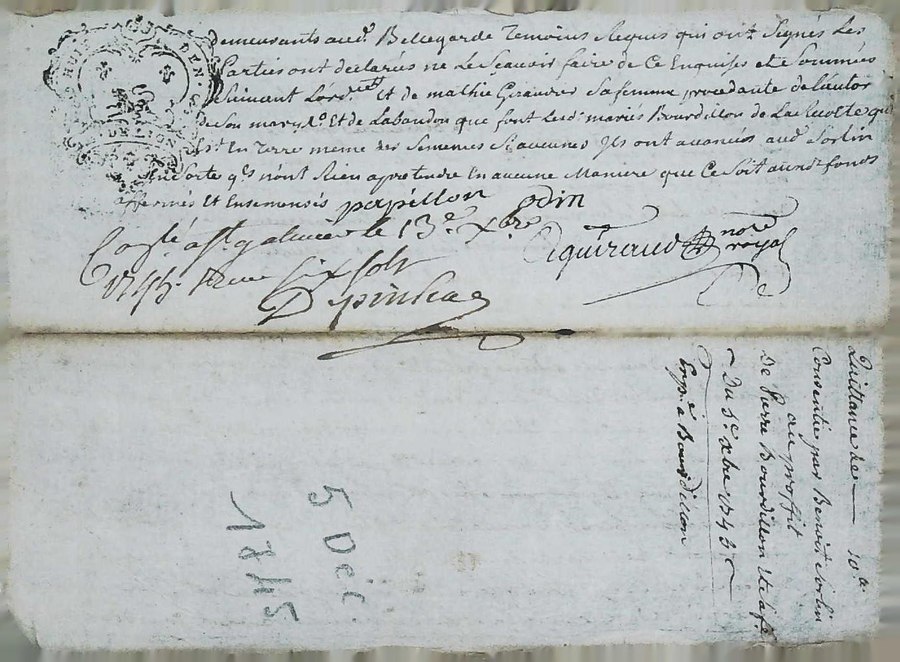 HUIT DEN.
demeurants aud.t Bellegarde Temoins Requis qui ont Signés Les
Parties ont declarés ne Le Sçavoir faire de Ce Enquises et Sommées
Suivant L'ord.ce et de mathie Sa femme procedante de L'autor
de Son mary et de Labandon que font Lesd. mariés Bourdillon de La Recolte qui
Est En Terre meme des Semences Si aucunes Ils ont avancés aud. Sorlin
En Sorte q.ls n'ont Rien a pretendre En aucune Maniere que Ce Soit auxd. fonds
affermés Et Ensemensés papillon odin
Con.lé a St galmier le 13e Xbre
1745. Reçu Six Sols
Depinhac
not.re royal
Quittance de 10
Consentie par Benoit Sorlin
au proffit
de Pierre Bourdillon et Sa fe
Du 5e xbre 1745
Exp.e a Bourdillon
5 Dec
1745